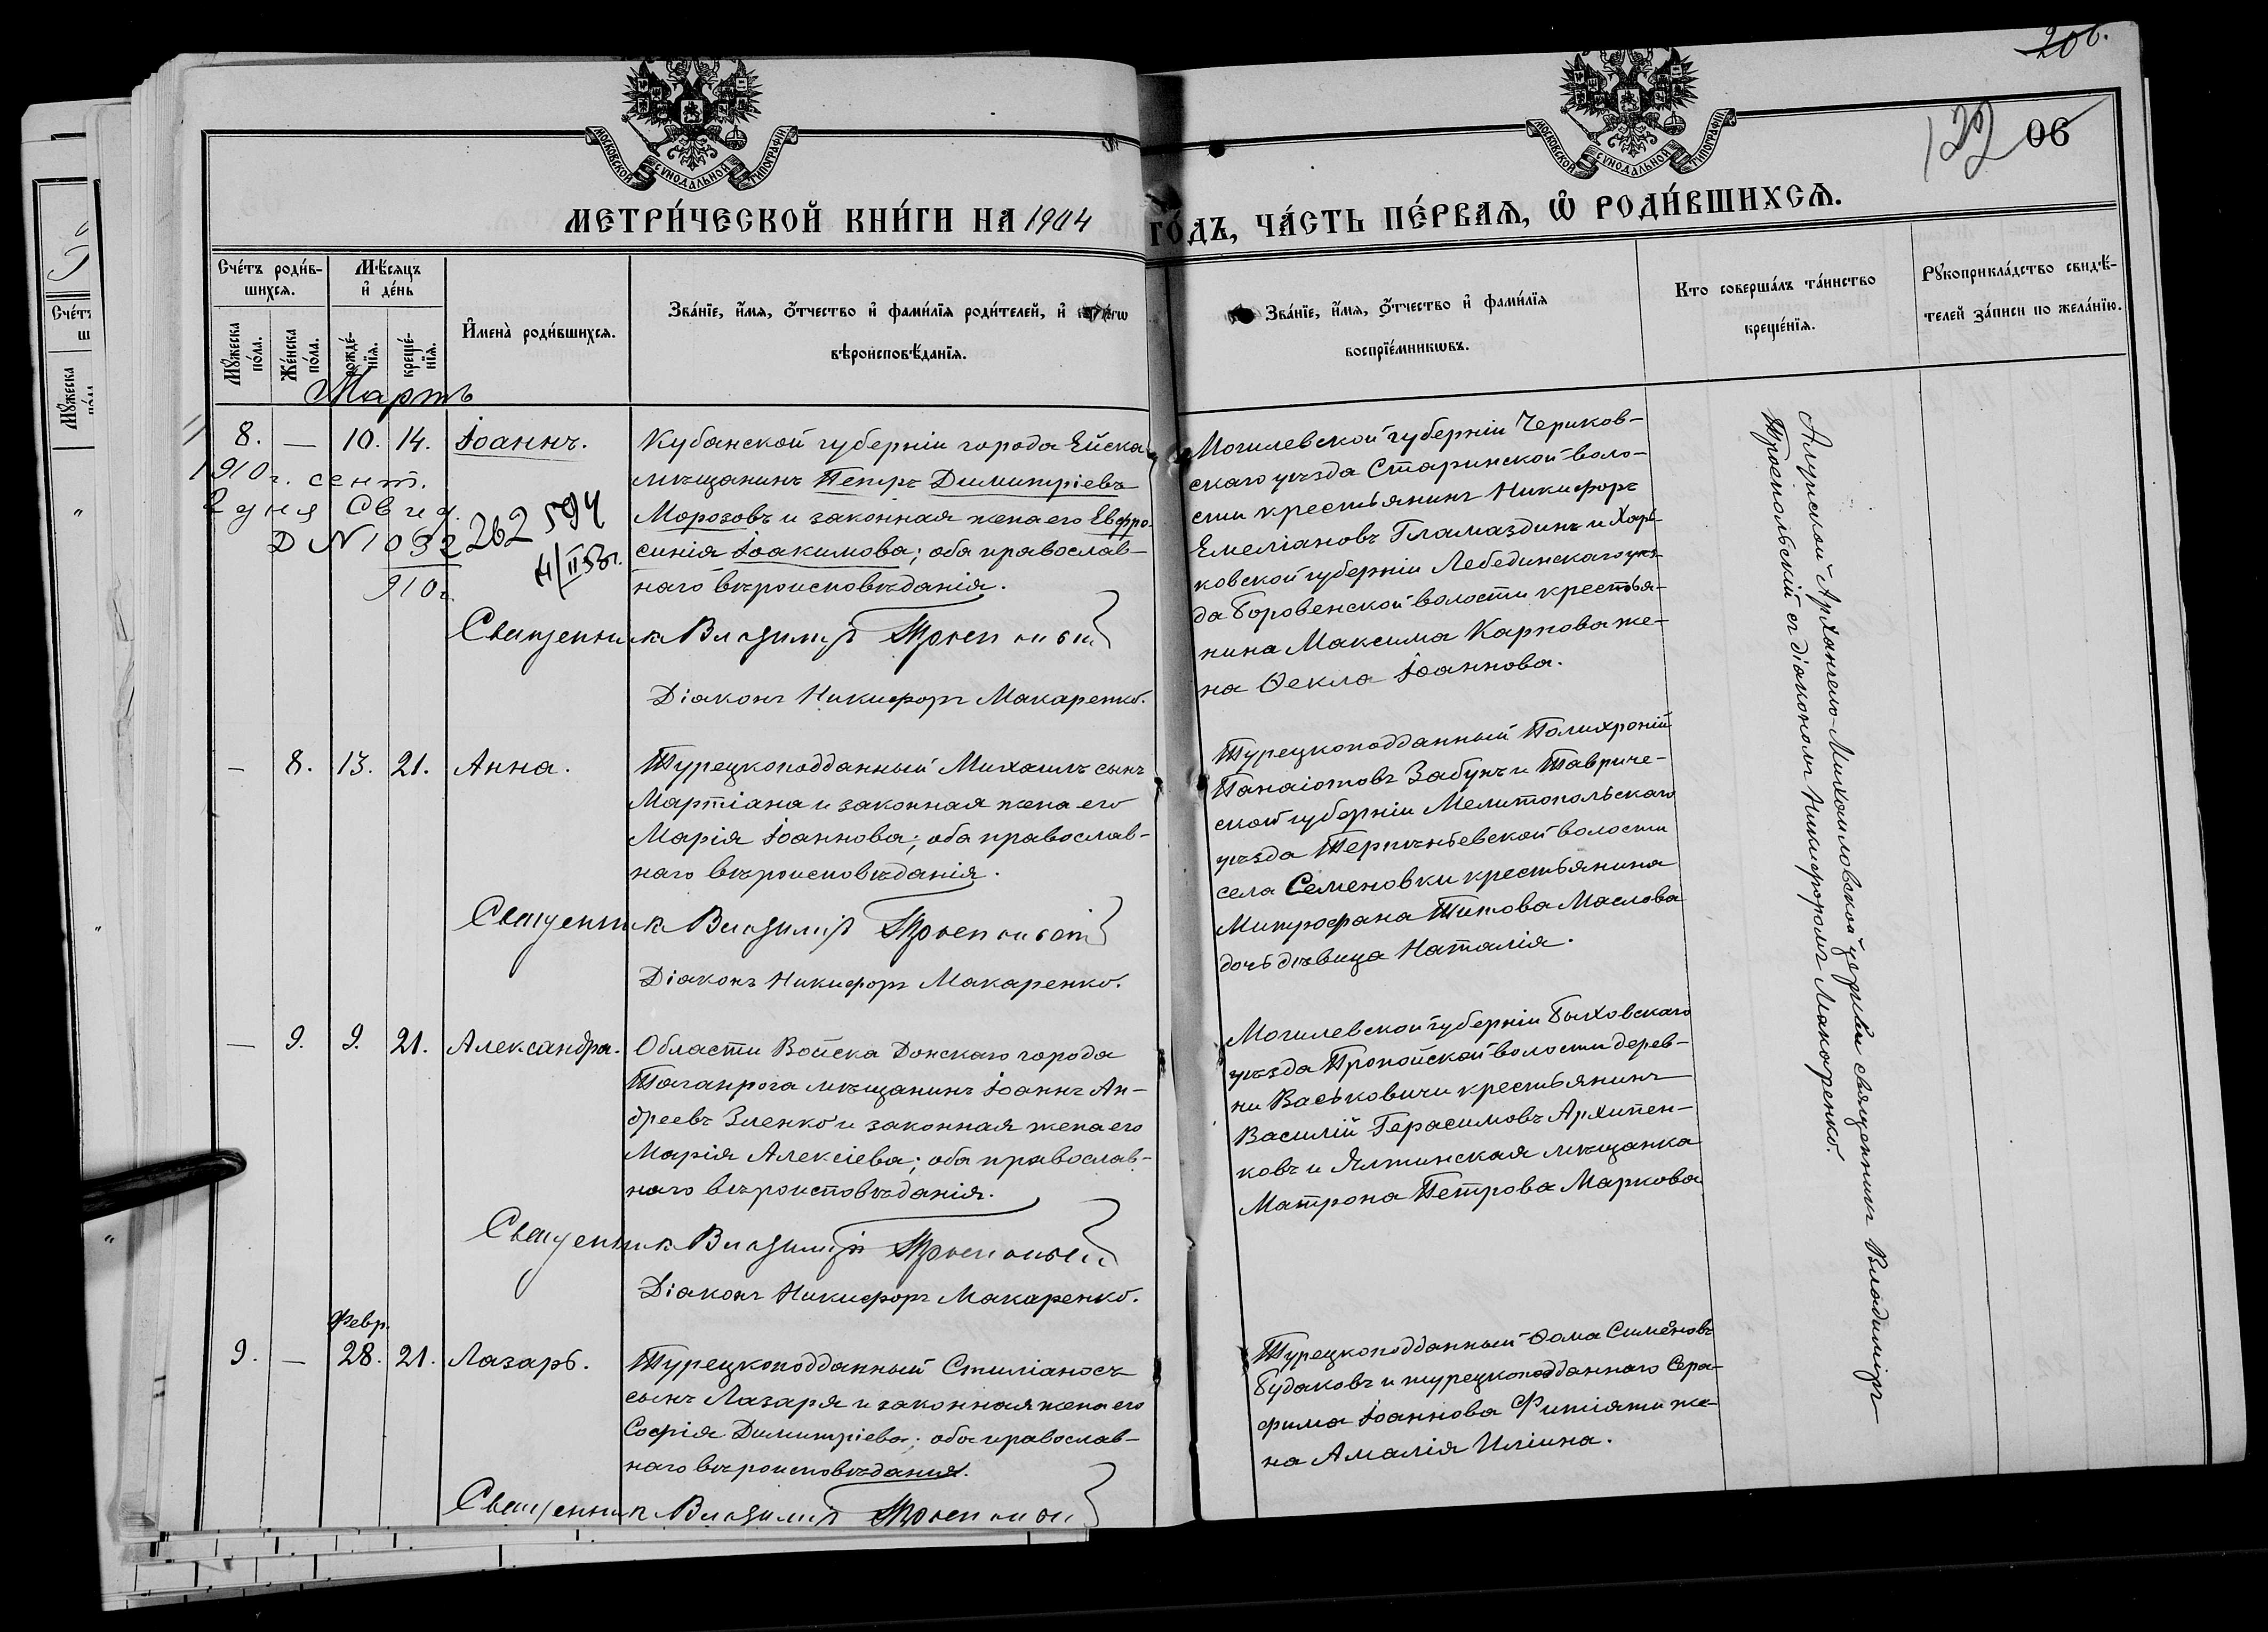 206.
132 06
МОСКОВСКОЙ СѴНОДАЛЬНОЙ ТИПОГРАФІИ
МОСКОВСКОЙ СѴНОДАЛЬНОЙ ТИПОГРАФІИ
МЕТРИ́ЧЕСКОЙ КНИ́ГИ НА 1904 ГО́ДЪ, ЧА́СТЬ ПЕ́РВАѦ, Ѡ РОДИ́ВШИХСѦ.
Сче́тъ роди́в-
шихсѧ.
Мѣ́сѧцъ
и҆ де́нь
Мꙋ́жеска по́ла.
Же́нска по́ла.
рожде́-
нїѧ.
креще́-
нїѧ.
И҆мена̀ роди́вшихсѧ.
Зва́нїе, и҆́мѧ, ѻ҆́тчество и҆ фами́лїѧ роди́телей, и҆
вѣроисповѣ́данїѧ.
Зва́нїе, и҆́мѧ, ѻ҆́тчество и҆ фами́лїѧ
воспрїе́мникѡвъ.
Кто соверша́лъ та́инство
креще́нїѧ.
Рꙋкоприкла́дство свидѣ́-
телей за́писи по жела́нїю.
Мартъ
8. — 10. 14. Іоаннъ.
1910 г. сент.
2 дня Свид.
Д № 1032
910 г.
262 594
4/II 53 г.
Кубанской губерніи города Ейска
мѣщанинъ Петръ Димитріевъ
Морозовъ и законная жена его Евфро-
синія Іоакимова; оба православ-
наго вѣроисповѣданія.
Священникъ Владиміръ Троепольскій
Діаконъ Никифоръ Макаренко.
Могилевской губерніи Чериков-
скаго уѣзда Старинской воло-
сти крестьянинъ Никифоръ
Емеліановъ Гламаздинъ и Харь-
ковской губерніи Лебединскаго уѣз-
да Боровенской волости крестья-
нина Максима Карпова же-
на Ѳекла Іоаннова.
— 8. 13. 21. Анна.
Турецкоподданный Михаилъ сынъ
Мартіана и законная жена его
Марія Іоаннова; оба православ-
наго вѣроисповѣданія.
Священникъ Владиміръ Троепольскій
Діаконъ Никифоръ Макаренко.
Турецкоподданный Полихроній
Панаіотовъ Забунъ и Тавриче-
ской губерніи Мелитопольскаго
уѣзда Терпѣньевской волости
села Семеновки крестьянина
Митрофана Титова Маслова
дочь дѣвица Наталія.
— 9. 9. 21. Александра.
Области Войска Донскаго города
Таганрога мѣщанинъ Іоаннъ Ан-
дреевъ Зленко и законная жена его
Марія Алексіева; оба православ-
наго вѣроисповѣданія.
Священникъ Владиміръ Троепольскій
Діаконъ Никифоръ Макаренко.
Могилевской губерніи Быховскаго
уѣзда Пропойской волости дерев-
ни Васьковичи крестьянинъ
Василій Герасимовъ Архипен-
ковъ и Ялтинская мѣщанка
Матрона Петрова Маркова
Февр.
9. — 28. 21. Лазарь.
Турецкоподданный Стиліаносъ
сынъ Лазаря и законная жена его
Софія Димитріева; оба православ-
наго вѣроисповѣданія.
Священникъ Владиміръ Троепольскій
Турецкоподданный Ѳома Симеоновъ
Будаковъ и турецкоподданнаго Сера-
фима Іоаннова Фитіати же-
на Амалія Иліина.
Алупкской Архангело-Михаиловской церкви священникъ Владиміръ
Троепольскій съ діакономъ Никифоромъ Макаренко.